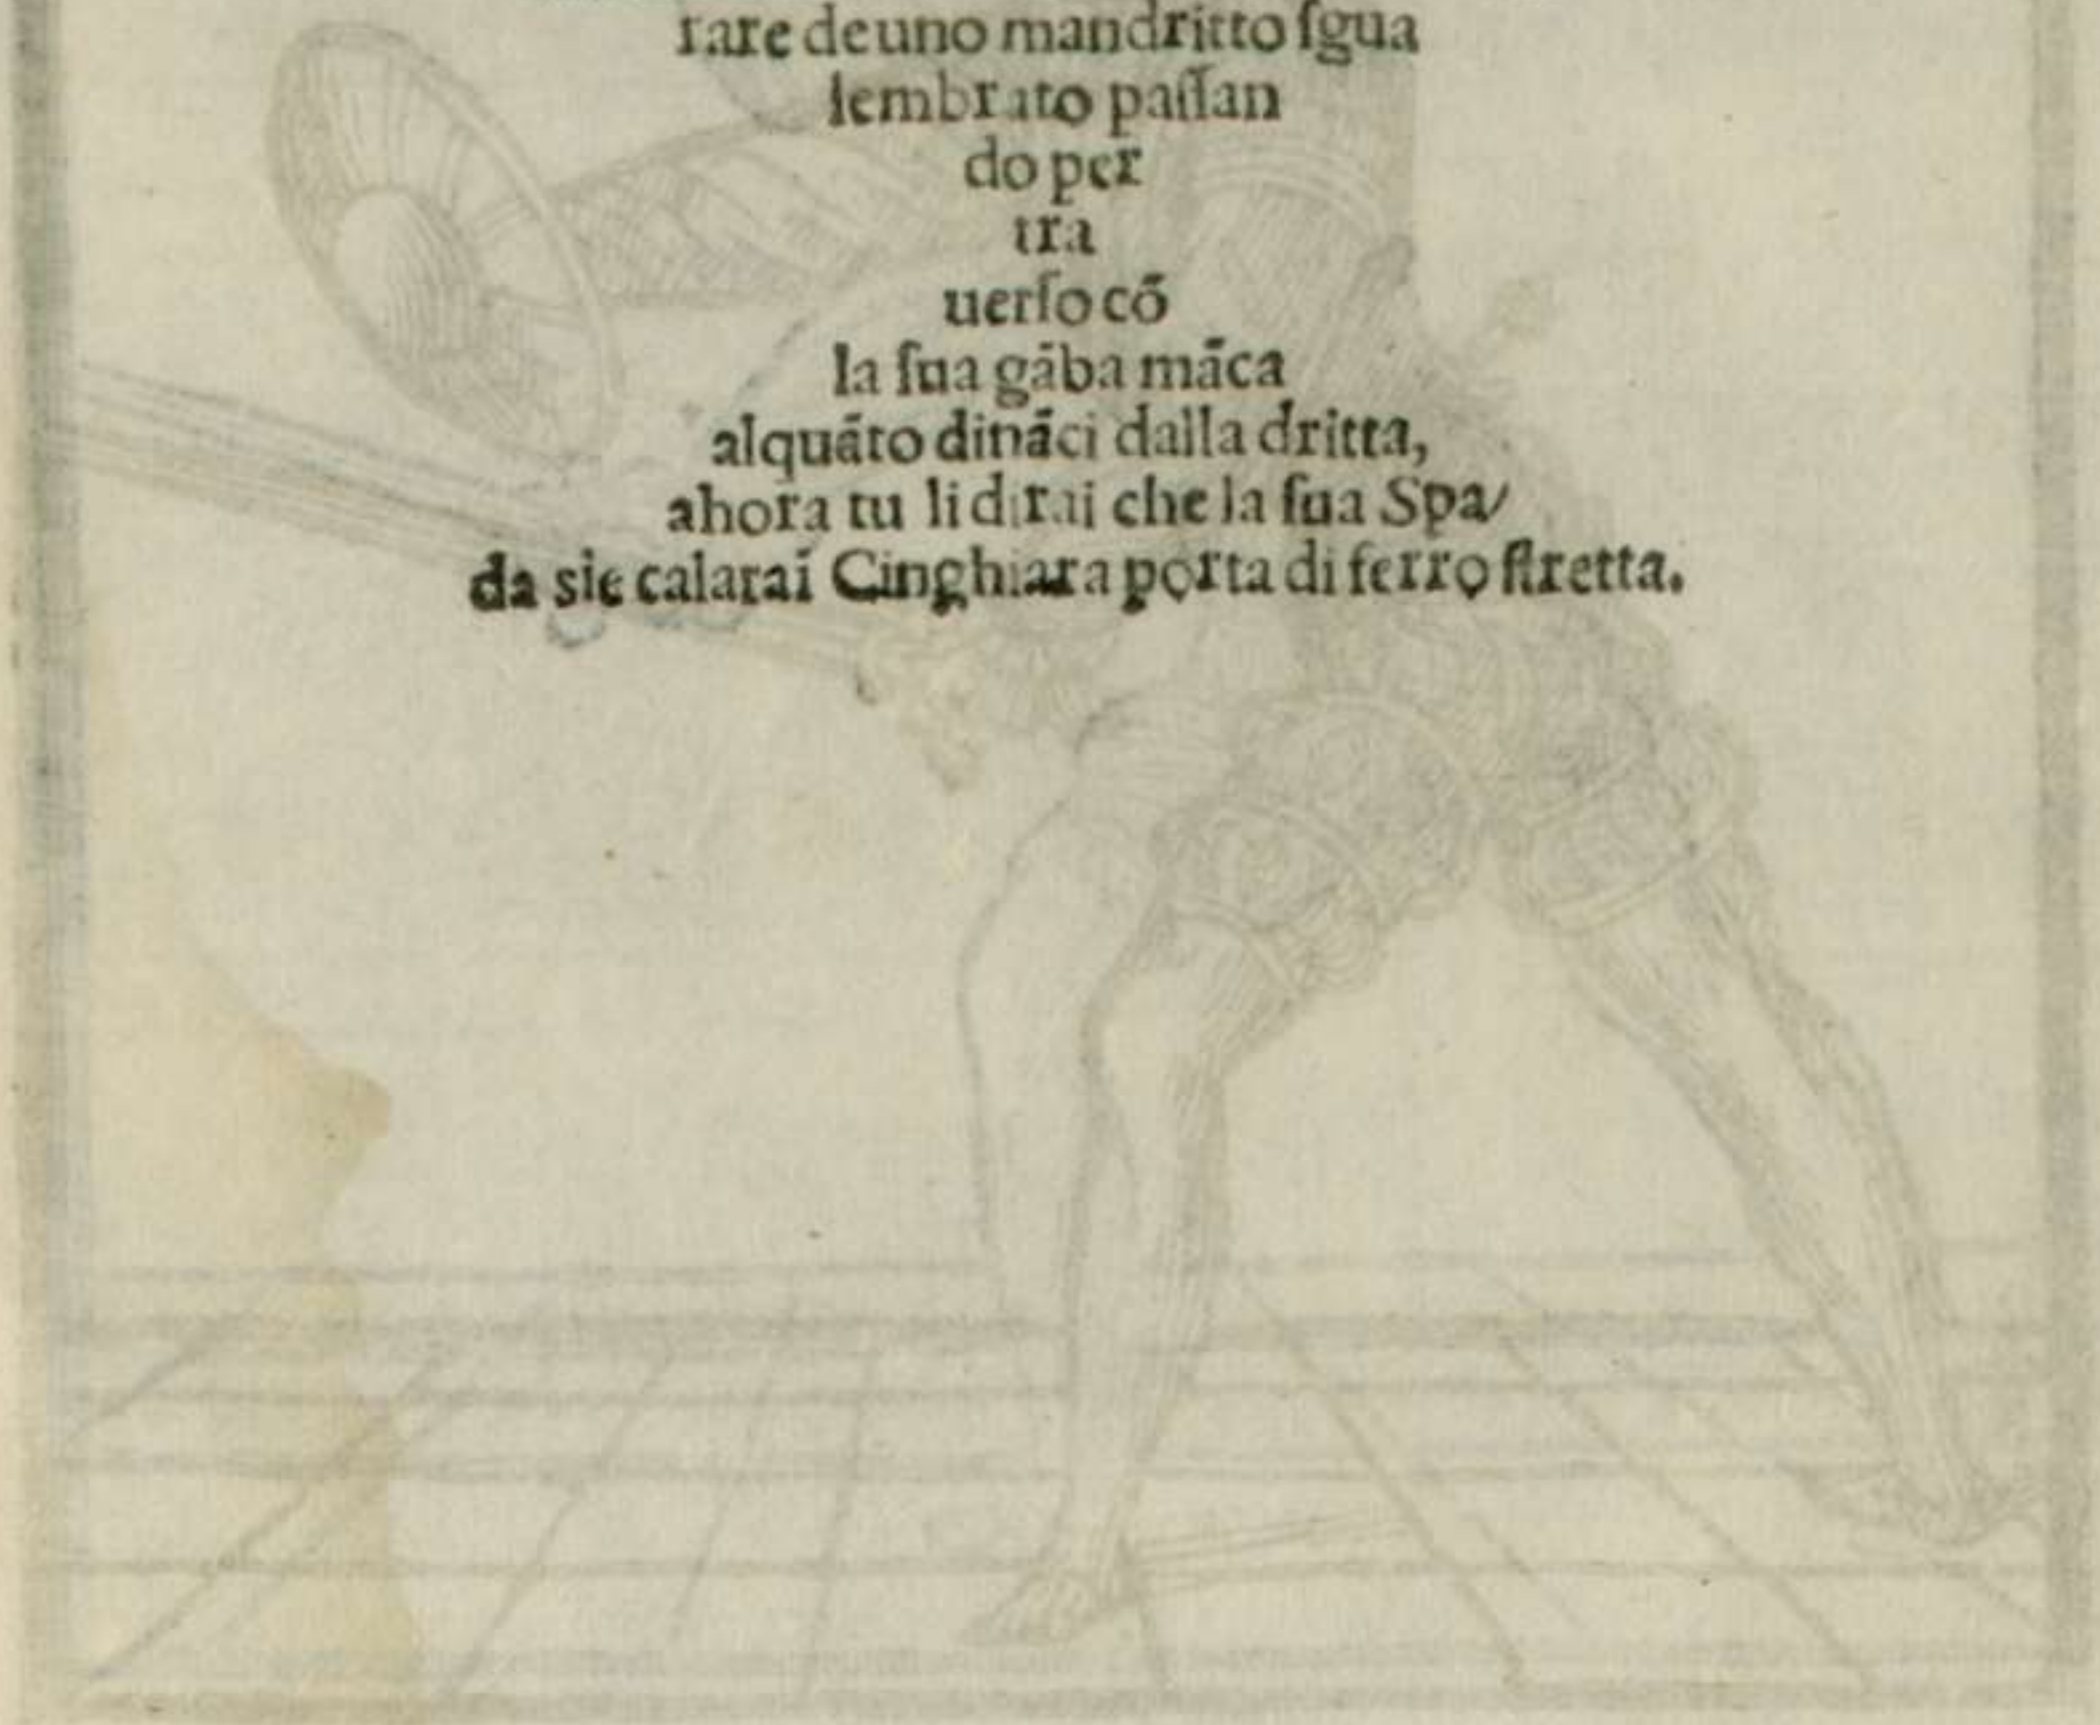 rare de uno mandritto ſgua
lembrato paſſan
do per
tra
uerſo cō
la ſua gāba māca
alquāto dināci dalla dritta,
ahora tu li dirai che la ſua Spa/
da sie calarai Cinghiara porta di ferro ſtretta.